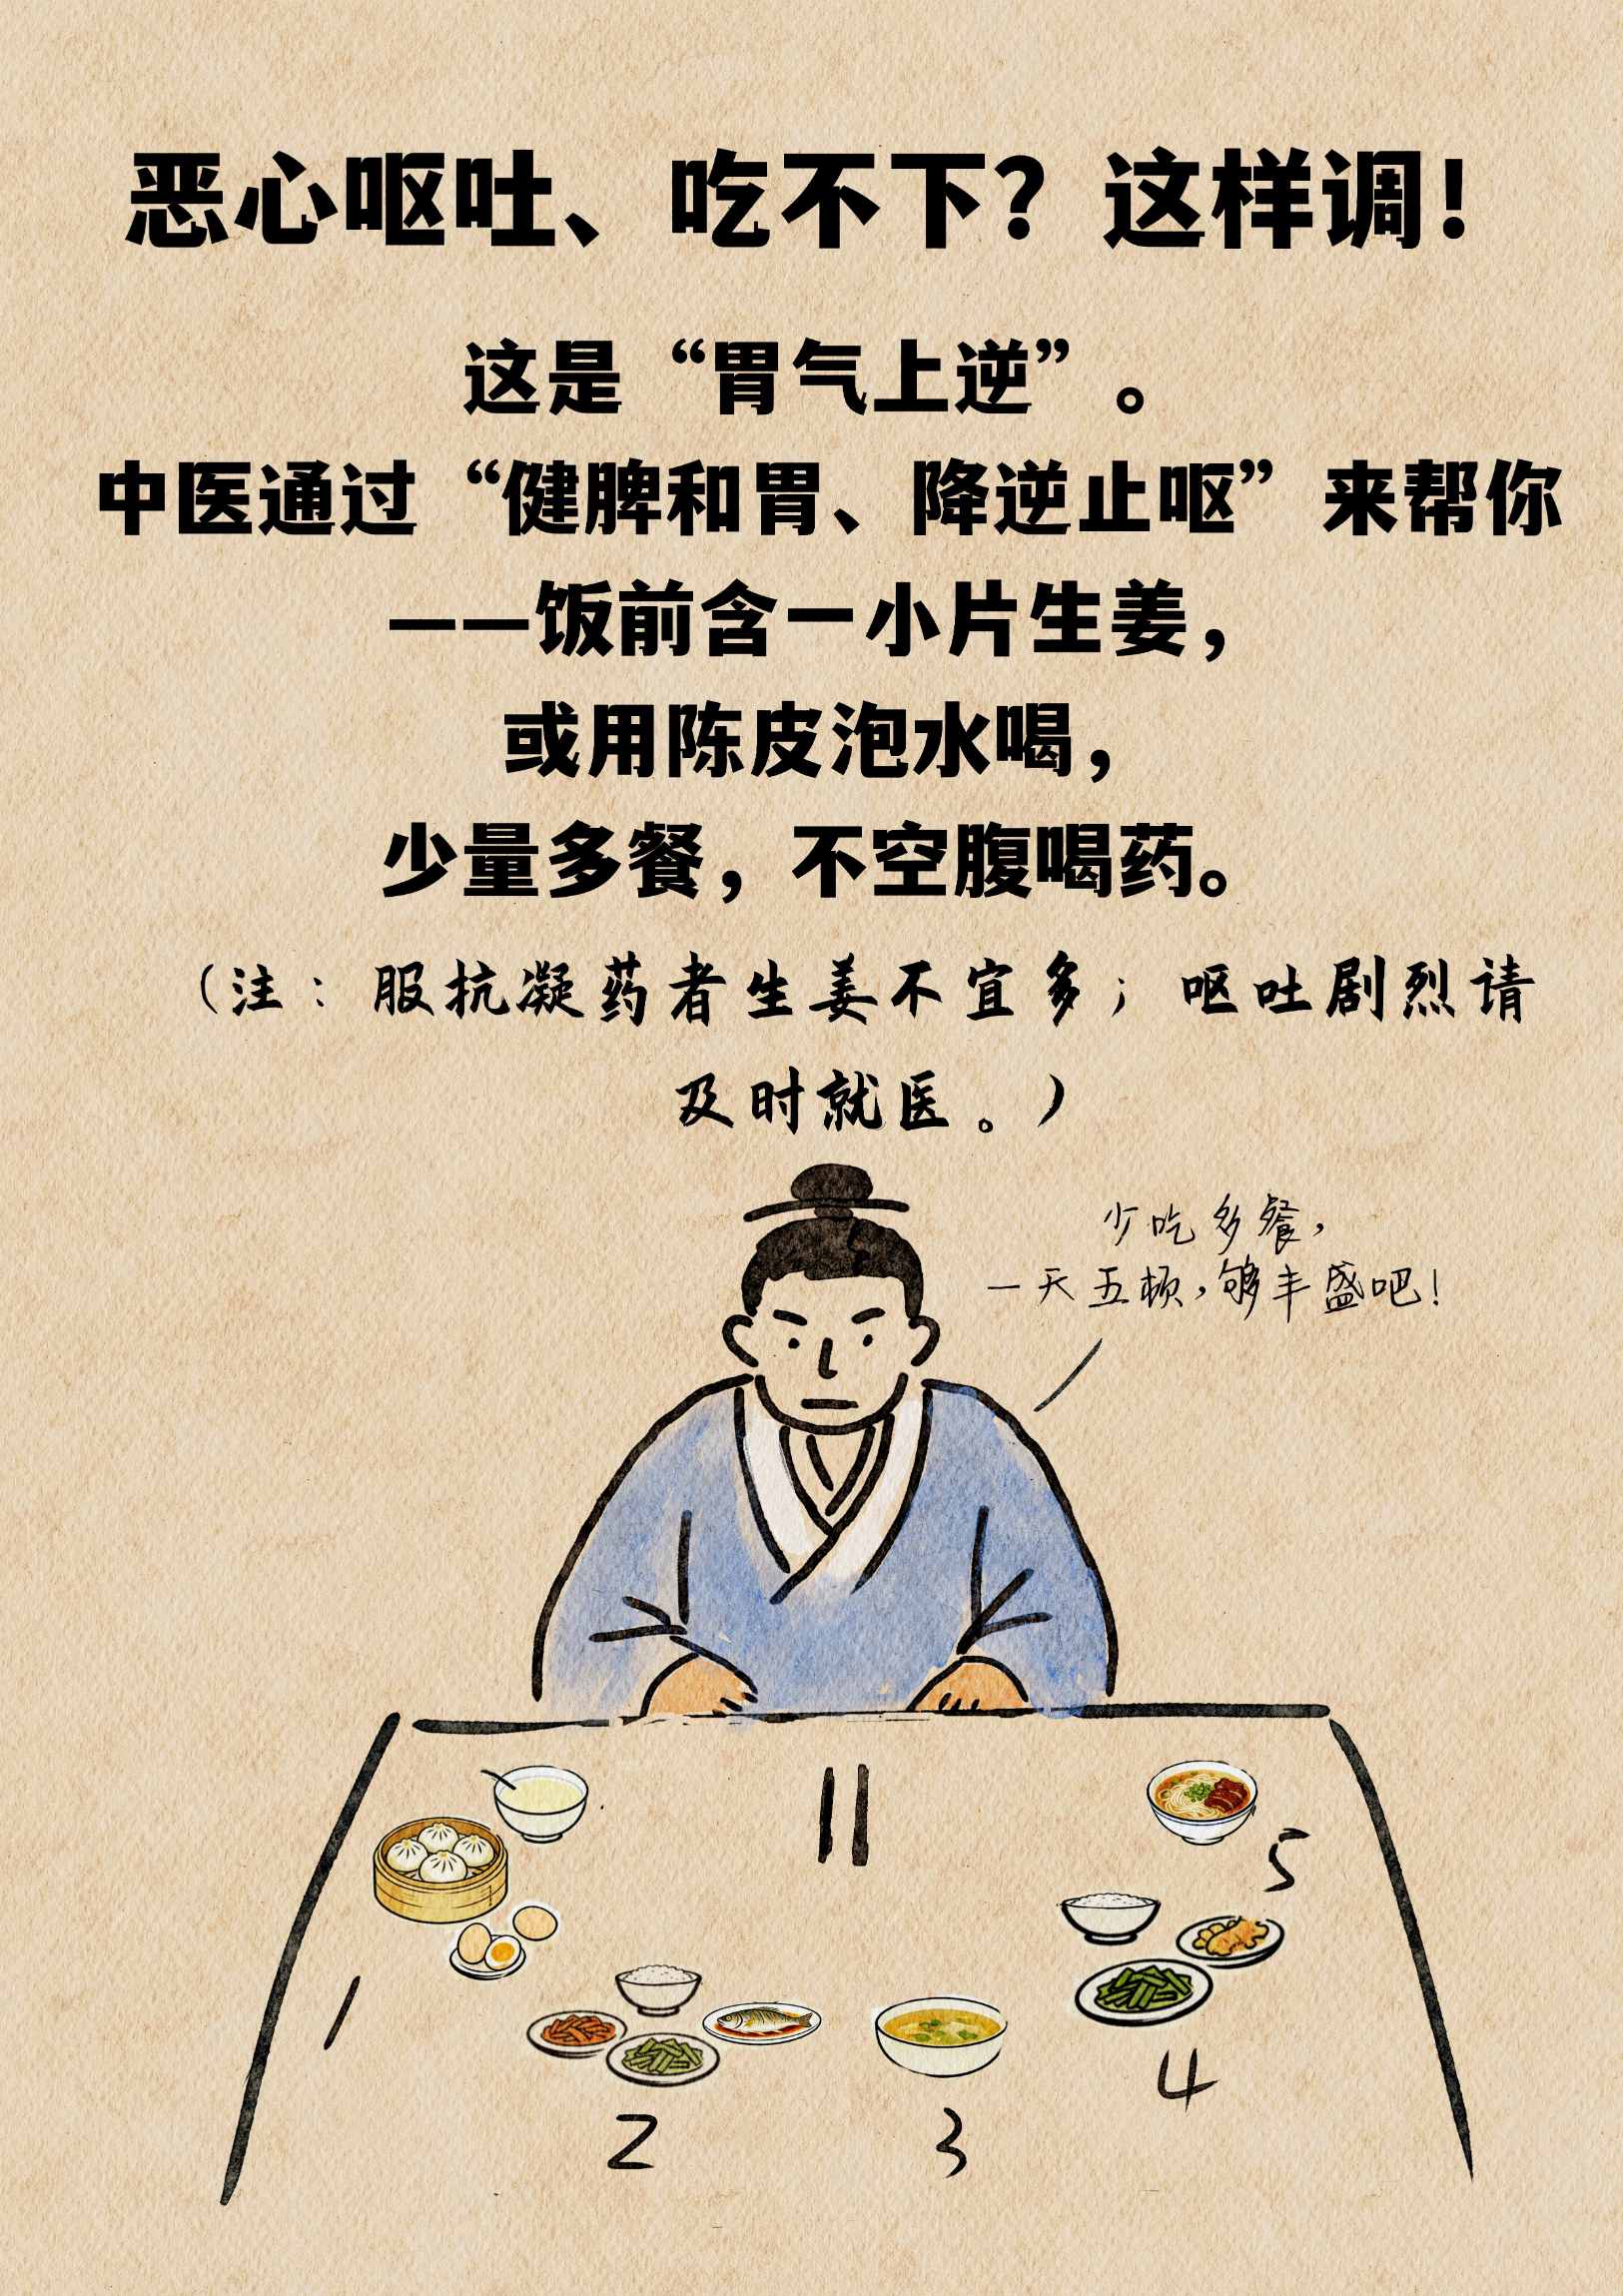 恶心呕吐、吃不下？这样调！
这是“胃气上逆”。
中医通过“健脾和胃、降逆止呕”来帮你
——饭前含一小片生姜，
或用陈皮泡水喝，
少量多餐，不空腹喝药。
（注：服抗凝药者生姜不宜多；呕吐剧烈请
及时就医。）
少吃多餐，
一天五顿，够丰盛吧！
1
2
3
4
5